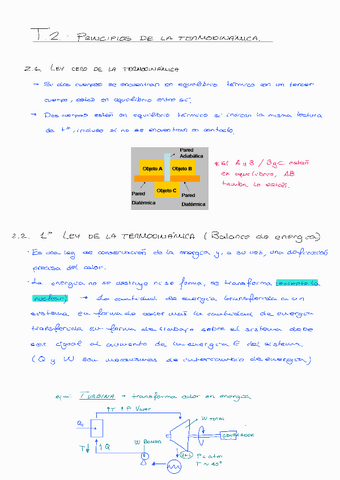 T2. PRINCIPIOS DE LA TERMODINÁMICA.
2.1. LEY CERO DE LA TERMODINÁMICA
→ Si dos cuerpos se encuentran en equilibrio térmico con un tercer
cuerpo, están en equilibrio entre sí.
→ Dos cuerpos están en equilibrio térmico si indican la misma lectura
de tª, incluso si no se encuentran en contacto.
Pared
Adiabática
Objeto A
Objeto B
Objeto C
Pared
Diatérmica
Pared
Diatérmica
* Si A y B / B y C están
en equilibrio, AB
también lo están.
2.2. 1ª LEY DE LA TERMODINÁMICA (Balance de energía)
· Es una ley de conservación de la energía y, a su vez, una definición
precisa del calor.
· La energía no se destruye ni se forma, se transforma (excepto la
nuclear). → La cantidad de energía transferida a un
sistema en forma de calor más la cantidad de energía
transferida en forma de trabajo sobre el sistema debe
ser igual al aumento de la energía E del sistema.
(Q y W son mecanismos de intercambio de energía)
TURBINA → transforma calor en energía
↑T ↑P Vapor
W
T↓ ↑Q
W
T ~ 40°